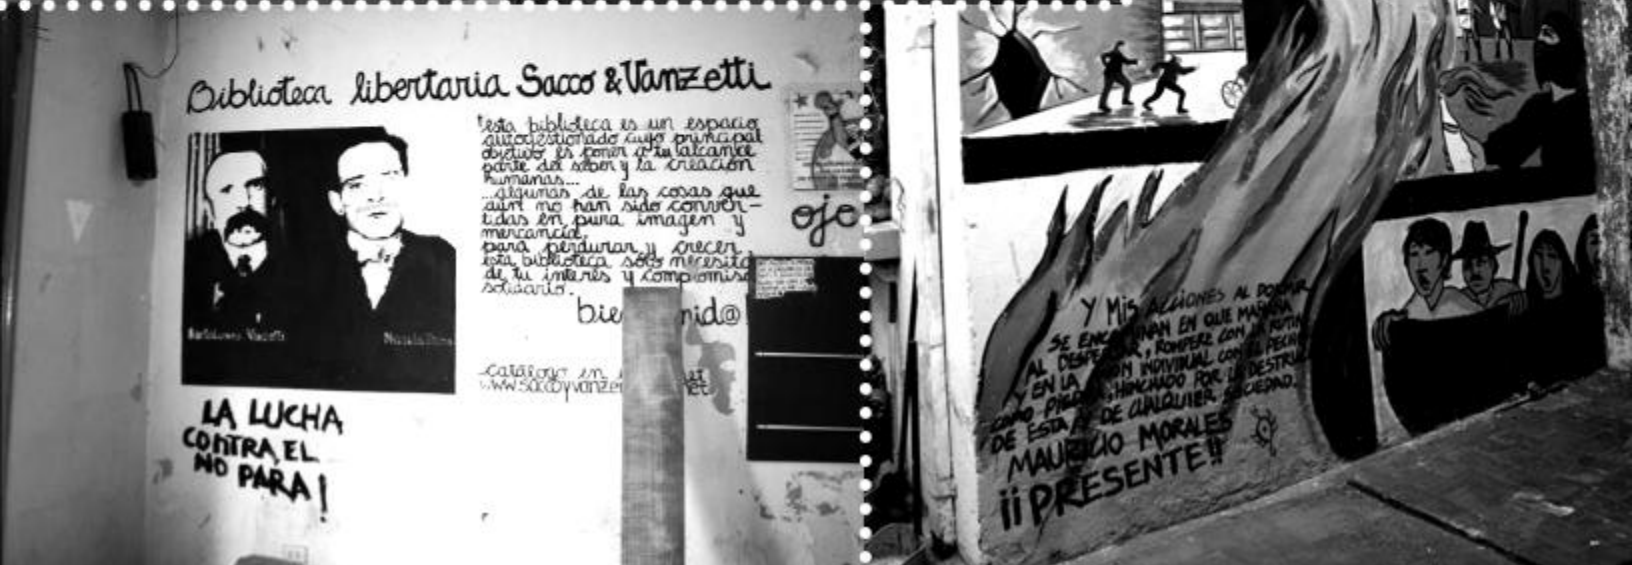 Biblioteca libertaria Sacco & Vanzetti
esta biblioteca es un espacio
autogestionado cuyo principal
objetivo es poner a tu alcance
parte del saber y la creación
humanas...
...algunas de las cosas que
aún no han sido conver-
tidas en pura imagen y
mercancía.
para perdurar y crecer
esta biblioteca sólo necesita
de tu interés y compromiso
solidario.
catálogo en
LA LUCHA
CONTRA EL
NO PARA!
oje
Y MIS ACCIONES AL DORMIR
SE EN QUE MAÑANA
AL , ROMPERE CON LA RUTINA
Y EN LA INDIVIDUAL CON EL PECHO
COMO HINCHADO POR LA
DE ESTA DE CUALQUIER SOCIEDAD.
MAURICIO MORALES
¡¡PRESENTE!!